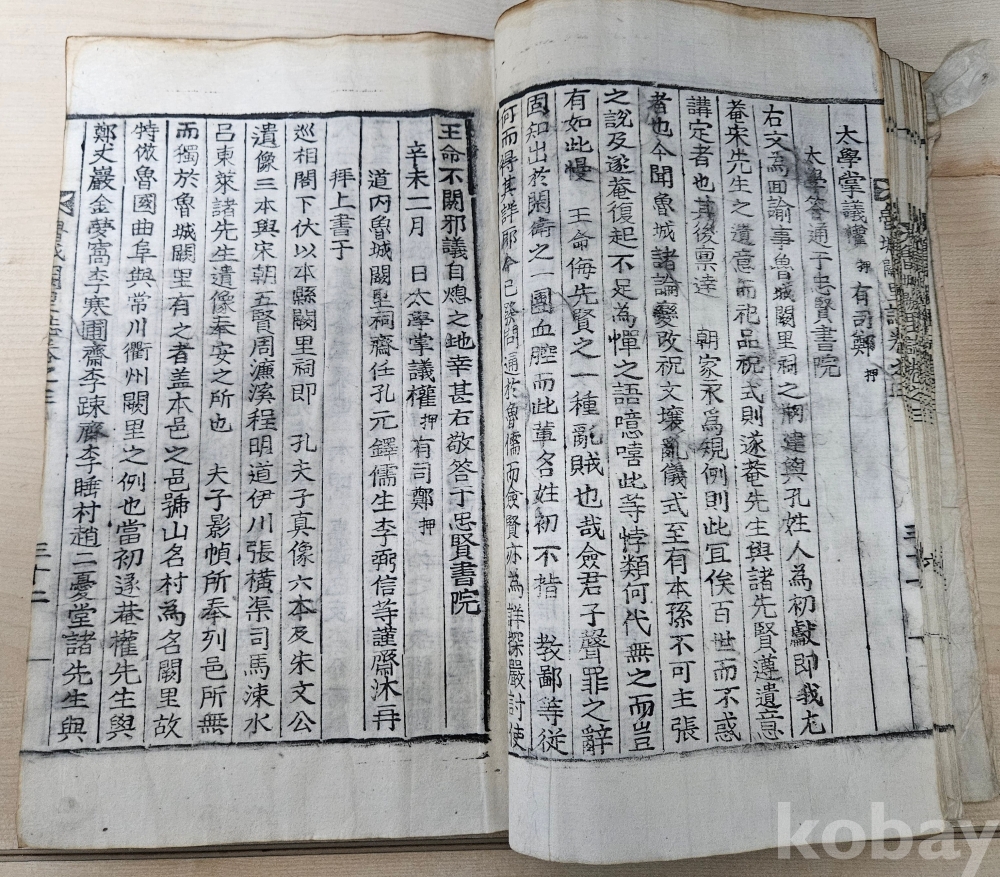 太學掌議權 押 有司鄭 押
太學答通于忠賢書院
右文為面諭事魯城闕里祠之刱建與孔姓人為初獻即我尤
菴宋先生之遺意而祀品祝式則遂菴先生與諸先賢遵遺意
講定者也其後禀達 朝家永爲規例則此宜俟百世而不惑
者也今聞魯城諸論變改祝文壞亂儀式至有本孫不可主張
之說及遂菴復起不足為憚之語噫嘻此等悖類何代無之而豈
有如此慢 王命侮先賢之一種亂賊也哉僉君子聲罪之辭
固知出於閑衛之一團血腔而此輩名姓初不揩 教鄙等従
何而得其詳耶今已發問通於魯儒而僉賢亦為詳探嚴討使
王命不閼邪議自熄之地幸甚右敬答于忠賢書院
辛未二月 日太學掌議權 押 有司鄭 押
道内魯城闕里祠齋任孔元鐸儒生李 信等謹齋沐再
拜上書于
巡相閤下伏以本縣闕里祠即 孔夫子真像六本及朱文公
遺像三本與宋朝五賢周濂溪程明道伊川張橫渠司馬涑水
呂東萊諸先生遺像奉安之所也 夫子影幀所奉列邑所無
而獨於魯城闕里有之者盖本邑之邑號山名村為名闕里故
特倣魯國曲阜與常川衢州闕里之例也當初遂菴權先生與
鄭丈巖金夢窩李寒圃齋李踈齋李睡村趙二憂堂諸先生與
魯城闕里誌卷之三
三十二
kobay